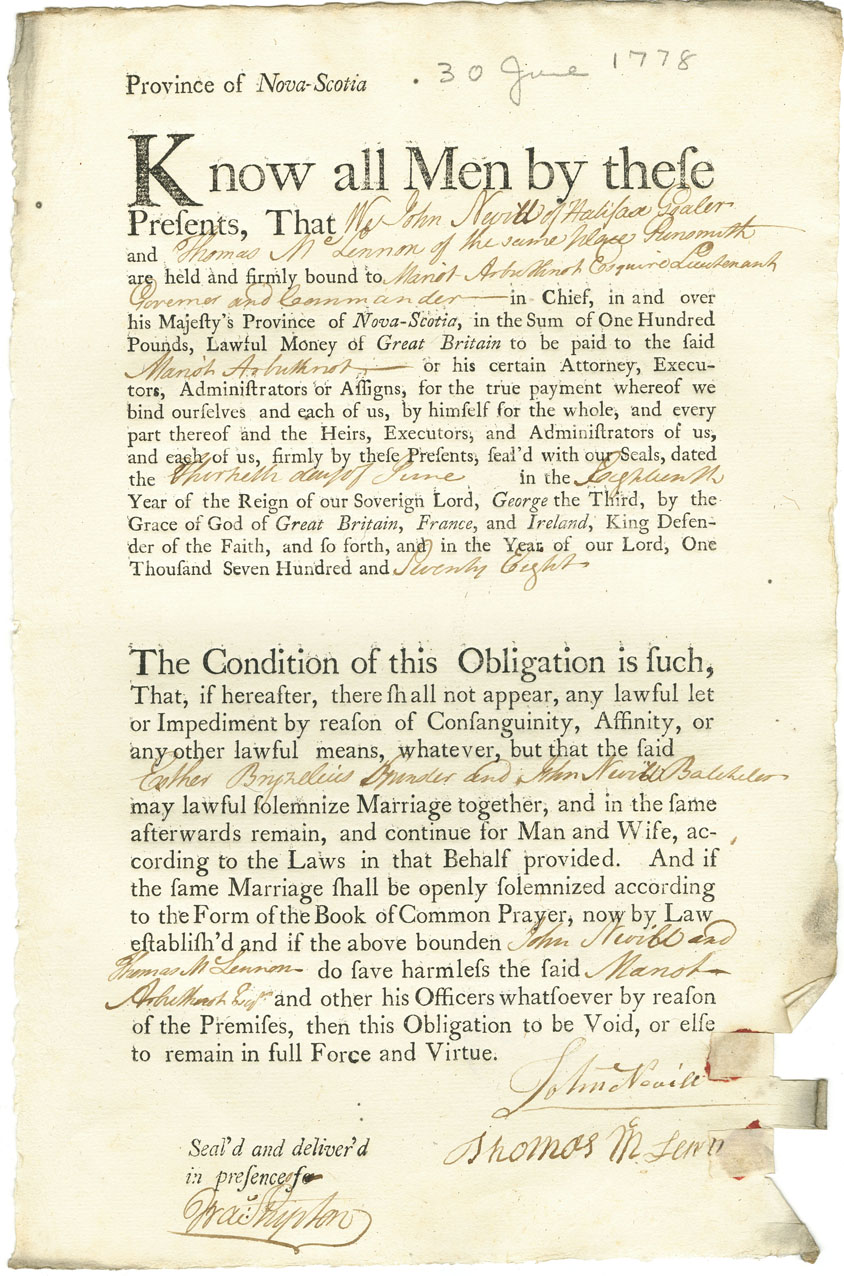 Province of Nova-Scotia
30 June 1778
Know all Men by theſe
Preſents, That We John Nevill of Halifax
and Thomas McLennon of the same place
are held and firmly bound to Mariot Arbuthnot Esquire Lieutenant
Governor and Commander in Chief, in and over
his Majeſty's Province of Nova-Scotia, in the Sum of One Hundred
Pounds, Lawful Money of Great Britain to be paid to the ſaid
Mariot Arbuthnot or his certain Attorney, Execu-
tors, Adminiſtrators or Aſſigns, for the true payment whereof we
bind ourſelves and each of us, by himſelf for the whole, and every
part thereof and the Heirs, Executors, and Adminiſtrators of us,
and each of us, firmly by theſe Preſents, ſeal'd with our Seals, dated
the Thirtieth day of June in the Eighteenth
Year of the Reign of our Soverign Lord, George the Third, by the
Grace of God of Great Britain, France, and Ireland, King Defen-
der of the Faith, and ſo forth, and in the Year of our Lord, One
Thouſand Seven Hundred and Seventy Eight
The Condition of this Obligation is ſuch,
That, if hereafter, there ſhall not appear, any lawful let
or Impediment by reaſon of Conſanguinity, Affinity, or
any other lawful means, whatever, but that the ſaid
Esther Bryzelius Spinster and John Nevill Batcheler
may lawful ſolemnize Marriage together, and in the ſame
afterwards remain, and continue for Man and Wife, ac-
cording to the Laws in that Behalf provided. And if
the ſame Marriage ſhall be openly ſolemnized according
to the Form of the Book of Common Prayer, now by Law
eſtabliſh'd and if the above bounden John Nevill and
Thomas McLennon do ſave harmleſs the ſaid Mariot
Arbuthnot Esqr and other his Officers whatſoever by reaſon
of the Premiſes, then this Obligation to be Void, or elſe
to remain in full Force and Virtue.
John Nevill
Thomas Mc Lenn
Seal'd and deliver'd
in preſence of
Shipton